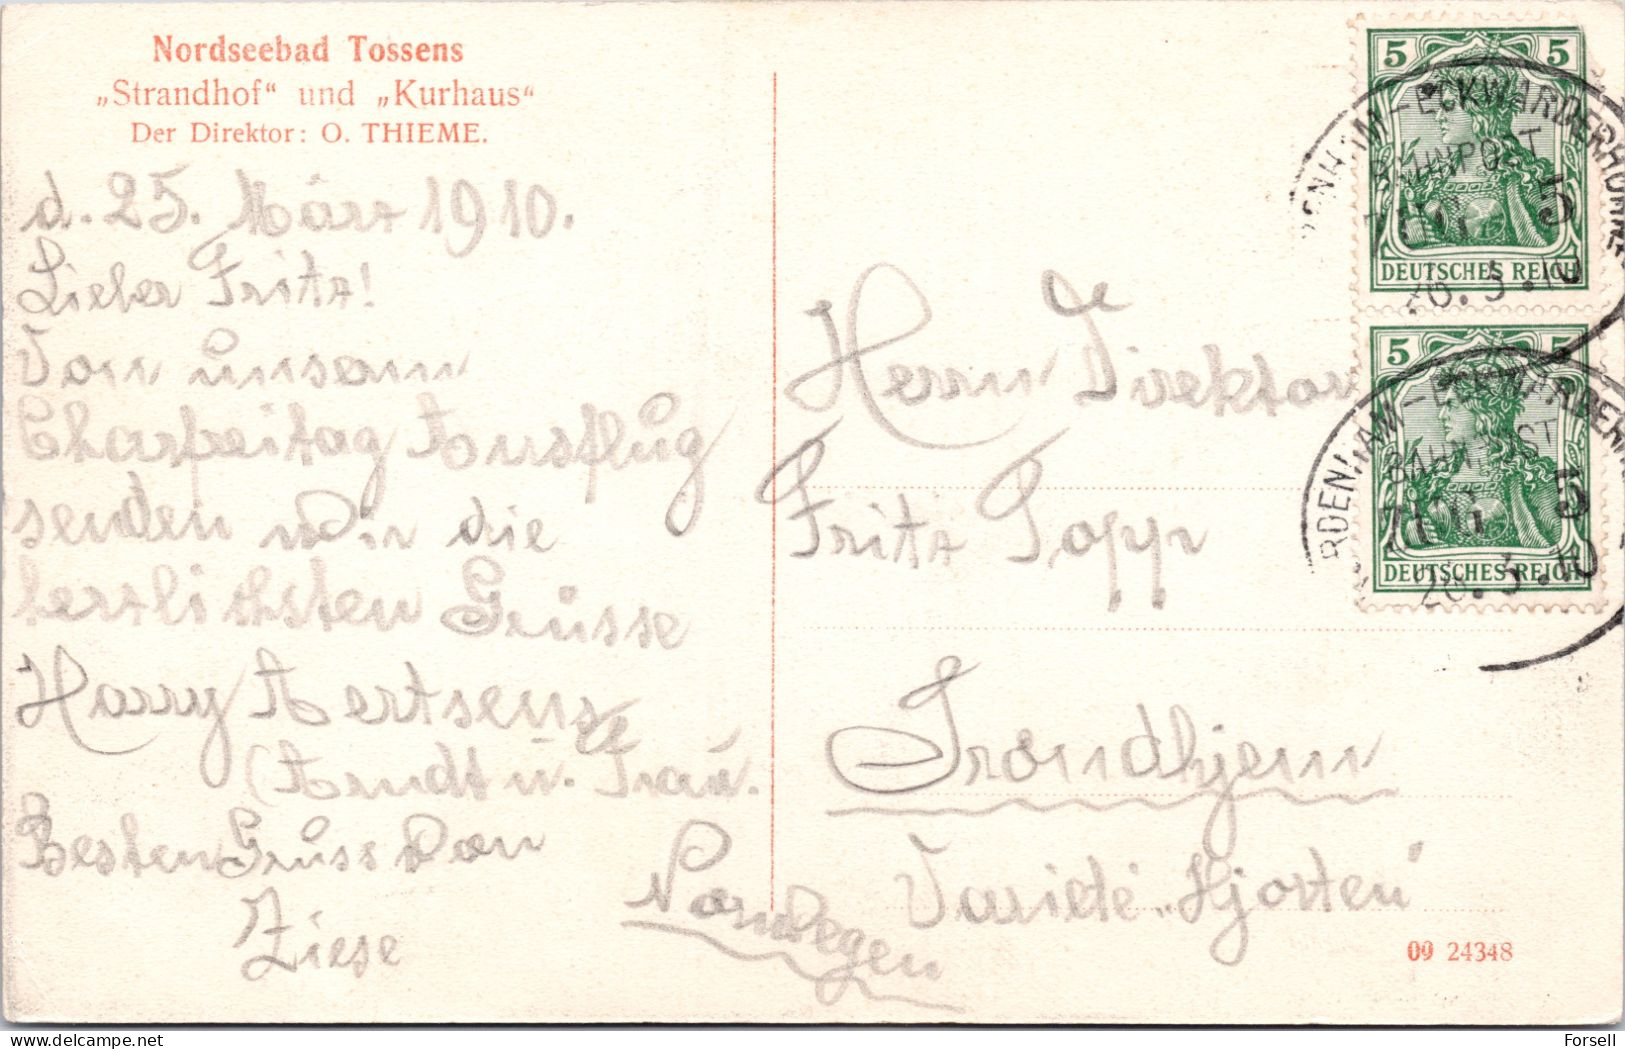 Nordseebad Tossens
„Strandhof“ und „Kurhaus“
Der Direktor: O. THIEME.
d. 25. März 1910.
Lieber Fritz!
Von unserm
Charfreitag Ausflug
senden wir die
herzlichsten Grüsse
Harry Aertsens
(Arndt u. Frau.
Besten Gruss von
Ziese
Herrn Direktor
Fritz Popp
Trondhjem
Varieté „Hjorten“
Norwegen
09 24348
5 5
DEUTSCHES REICH
5 5
DEUTSCHES REICH
NORDENHAM-ECKWARDERHÖRNE
BAHNPOST
ZUG 5
26.3.10
NORDENHAM-ECKWARDERHÖRNE
BAHNPOST
ZUG 5
26.3.10
Forsell